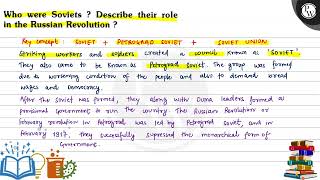 Who were Soviets ? Describe their role
in the Russian Revolution ?
Key concept SOVIET + PETROGRAD SOVIET + SOVIET UNION
Striking workers and soldiers created a council known as 'SOVIET'.
They also came to be known as Petrograd Soviet. The group was formed
due to worsening condition of the people and also to demand bread
wages and Democracy.
After the Soviet was formed, they along with Duma leaders formed a
provisional government to run the country. The Russian Revolution or
february revolution in Petrograd was led by Petrograd Soviet, and in
february 1917, they successfully supressed the monarchical form of
Government.